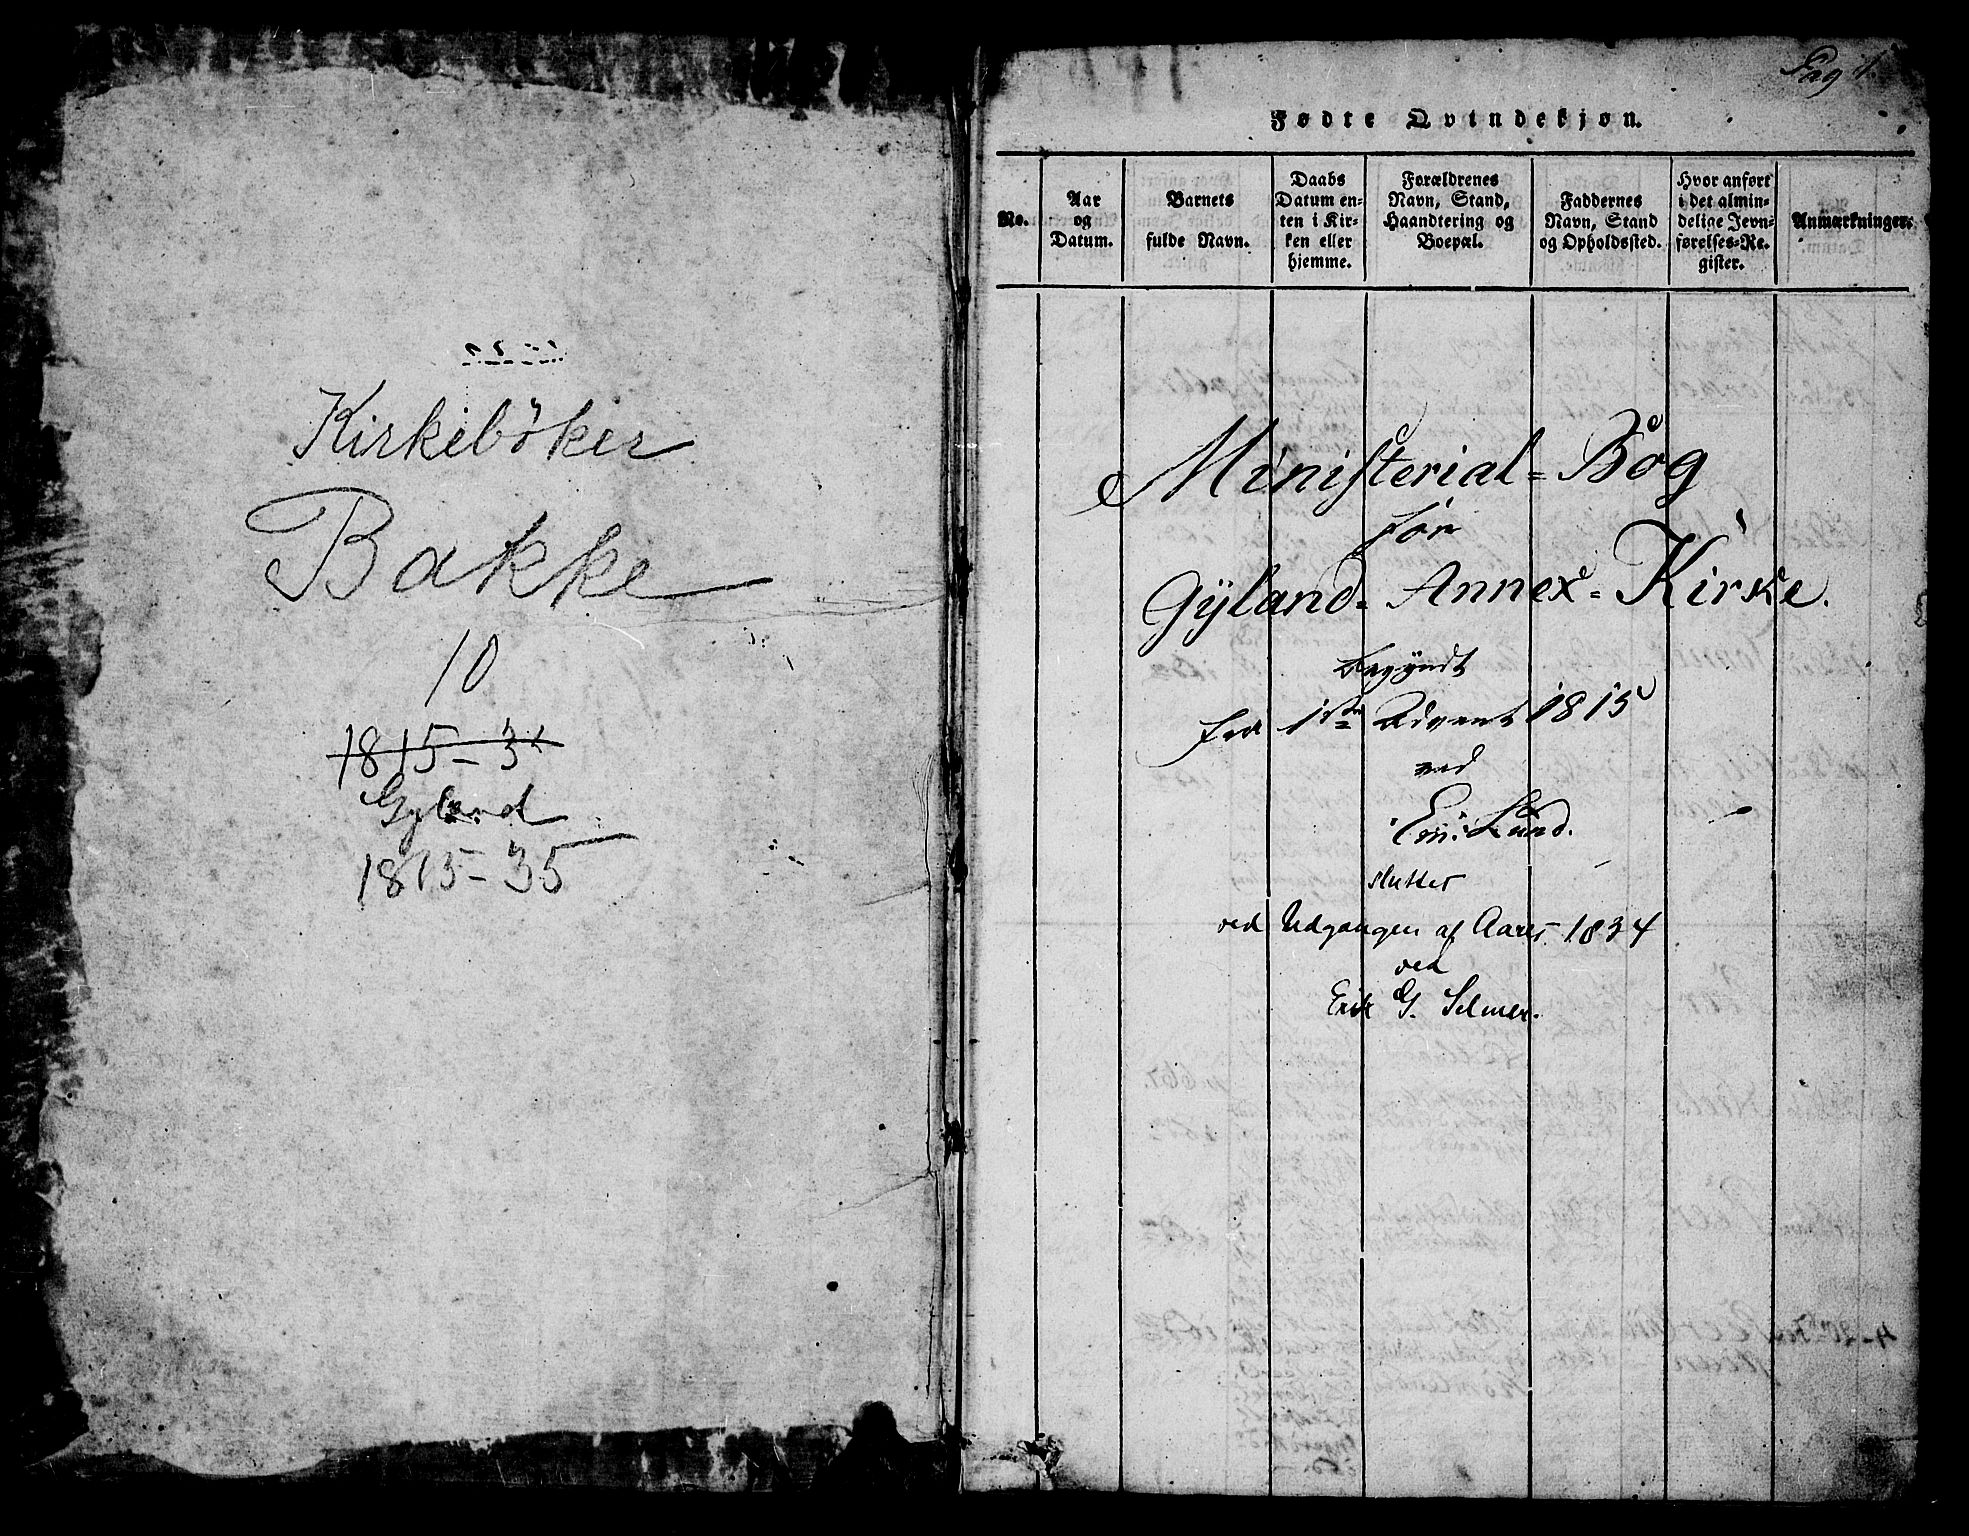 Kirkeböker
Bakke
10
1815-3
Gyland
1815-35
Pag 1.
Fødte Qvindekjøn.
No.
Aar
og
Datum.
Barnets
fulde Navn.
Daabs
Datum en-
ten i Kir-
ken eller
hjemme.
Forældrenes
Navn, Stand,
Haandtering og
Boepæl.
Faddernes
Navn, Stand
og Opholdssted.
Hvor anført
i det almin-
delige Jevn-
førelses-Re-
gister.
Anmærkninger.
Ministerial=Bog
for
Gyland=Annex=Kirke.
begyndt
fra 1ste Advent 1815
ved
Em: Lund.
slutter
ved Udgangen af Aaret 1834
ved
Erik G. Selmer.